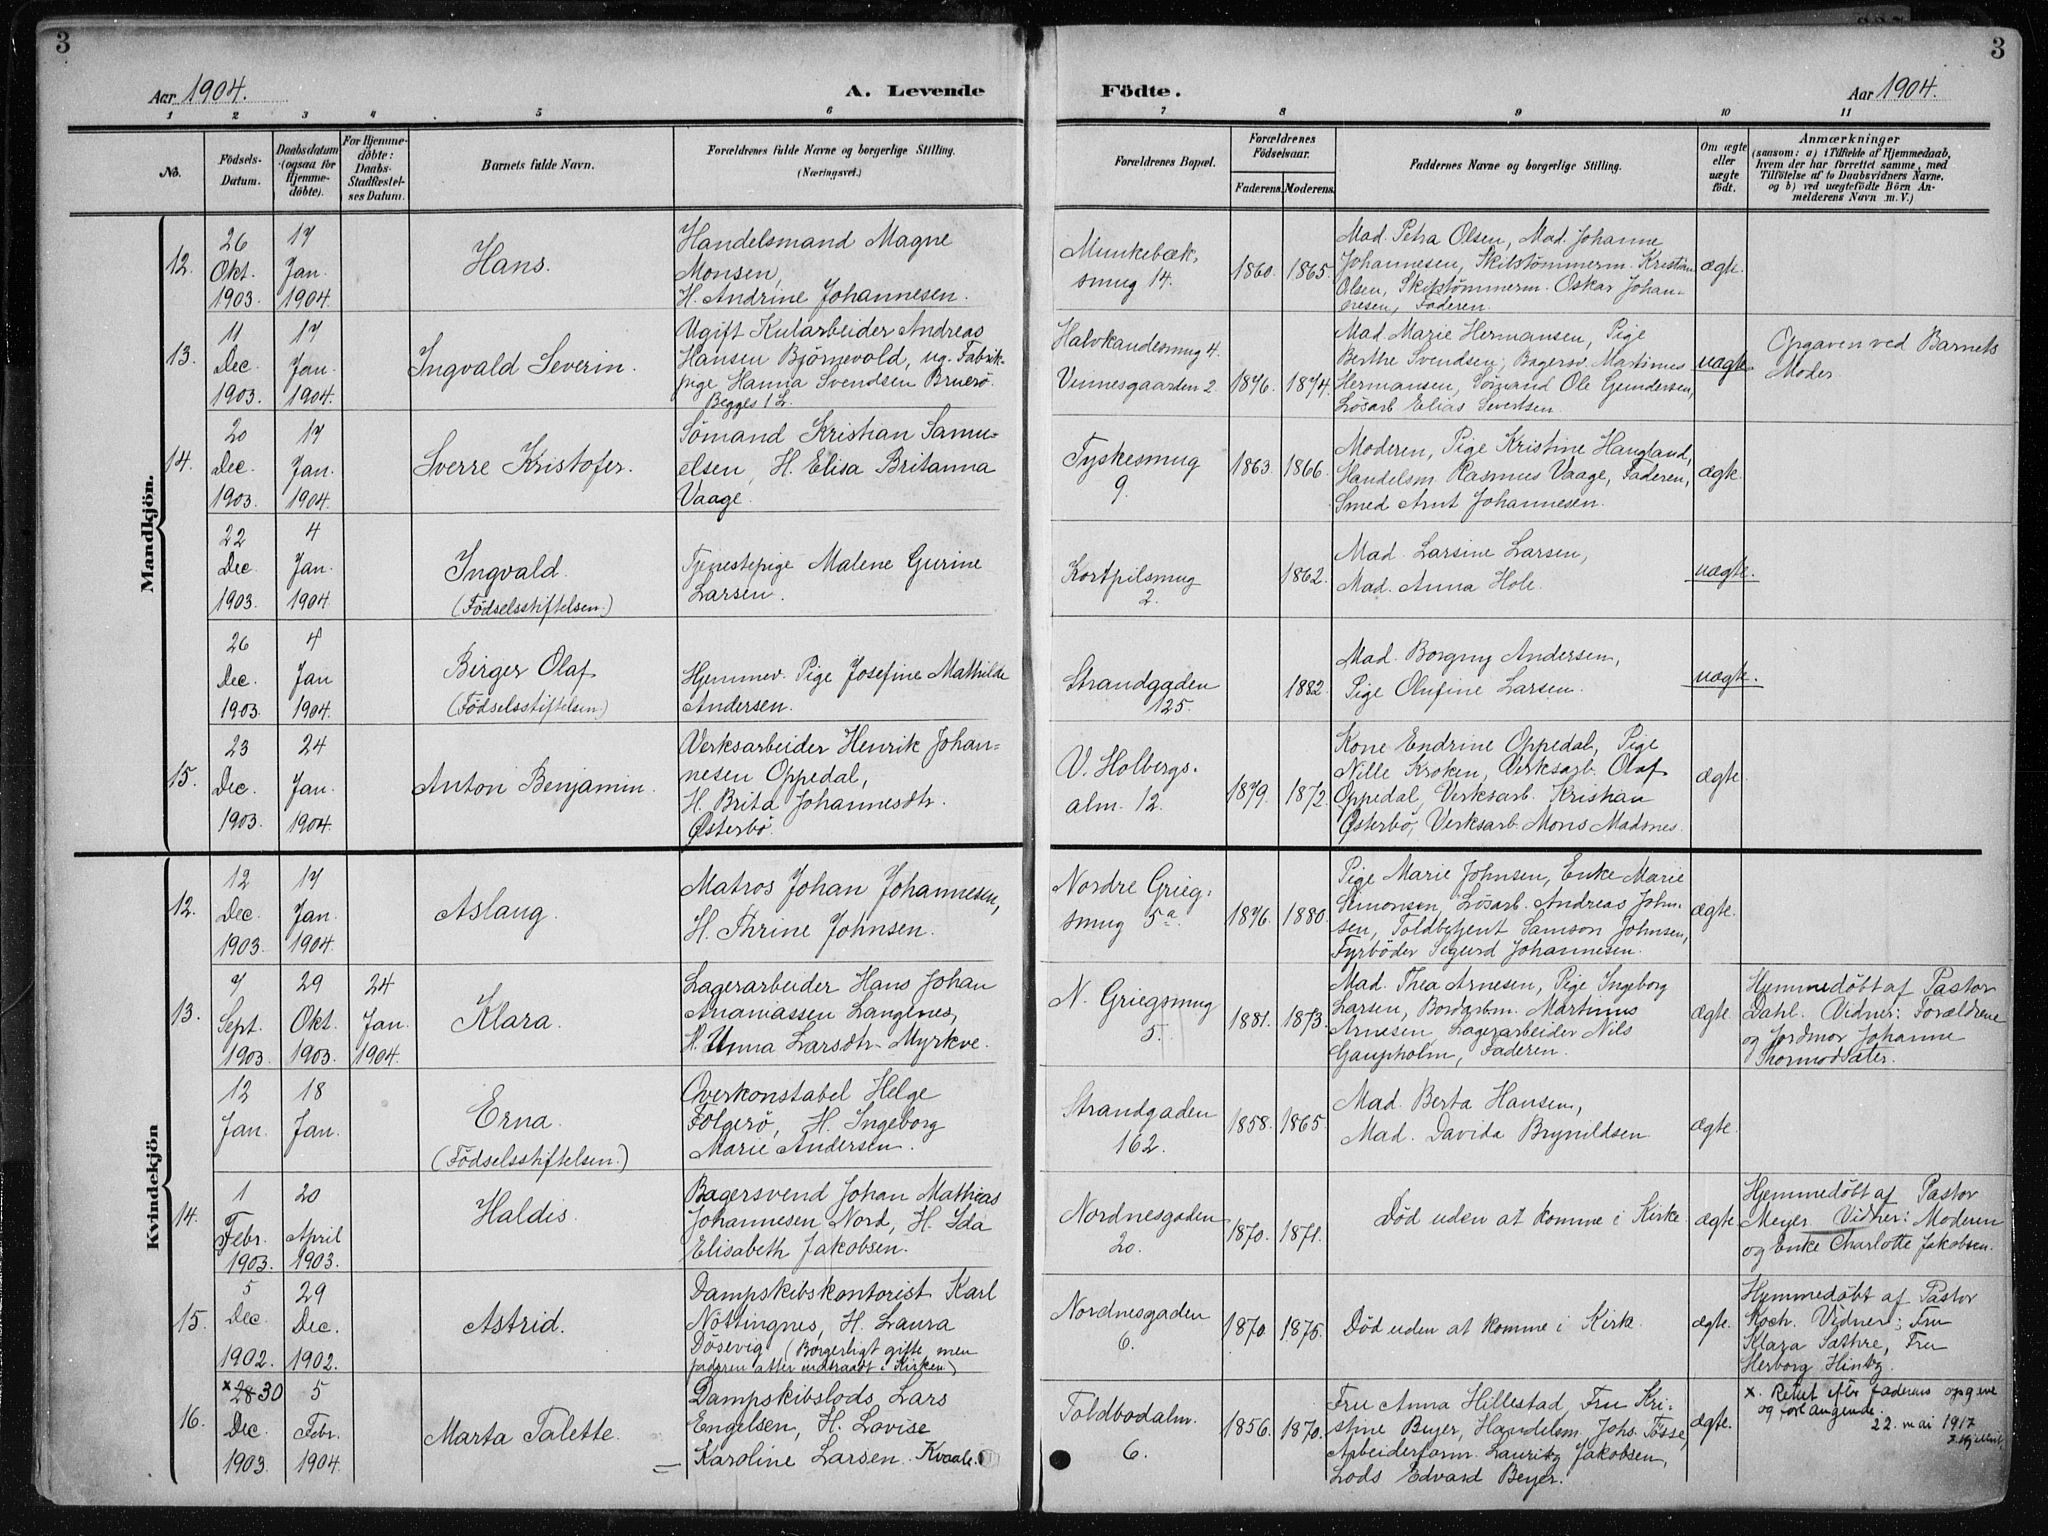 3
3
Aar 1904.
A. Levende
Födte.
Aar 1904.
1 2 3 4 5 6 7 8 9 10 11
No.
Födsels-
Datum.
Daabsdatum
(ogsaa for
Hjemme-
döbte).
For Hjemme-
döbte:
Daabs-
Stadfæstel-
ses Datum.
Barnets fulde Navn.
Forældrenes fulde Navne og borgerlige Stilling.
(Næringsvei.)
Forældrenes Bopæl.
Forældrenes
Födselsaar.
Faderens.
Moderens.
Faddernes Navne og borgerlige Stilling.
Om ægte
eller
uægte
födt.
Anmærkninger
(saasom: a) i Tilfælde af Hjemmedaab,
hvem der har forrettet samme, med
Tilföielse af to Daabsvidners Navne,
og b) ved uægtefödte Börn An-
melderens Navn m. V.)
Mandkjön.
12.
26
Okt.
1903.
17
Jan.
1904.
Hans.
Handelsmand Magne
Monsen,
H. Andrine Johannesen.
Munkebæk-
smug 14.
1860.
1865.
Mad. Petra Olsen, Mad. Johanne
Johannesen, Skibstømmerm. Kristian
Olsen, Skibstømmerm. Oskar Johan-
nesen, Faderen.
ægte.
13.
11
Dec.
1903.
17
Jan.
1904.
Ingvald Severin.
Ugift Kularbeider Andreas
Hansen Björnevold, ug. Fabrik-
pige Hanna Svendsen Bruerö.
Begges 1 L.
Halvkandesmug 4.
Vinnesgaarden 2
1876.
1874.
Mad Marie Hermansen, Pige
Berthe Svendsen, Bagersv. Martinus
Hermansen, Sömand Ole Gundersen,
Lösarb Elias Severtsen.
uægte
Opgaven ved Barnets
Moder.
14.
20
Dec.
1903.
17
Jan.
1904.
Sverre Kristofer.
Sömand Kristian Samu-
elsen, H. Elisa Britanna
Vaage.
Tyskesmug
9.
1863.
1866.
Moderen, Pige Kristine Haugland,
Handelsm. Rasmus Vaage, Faderen,
Smed Arnt Johannesen.
ægte.
22
Dec.
1903.
4
Jan.
1904.
Ingvald.
(Födselsstiftelsen.)
Tjenestepige Malene Gurine
Larsen.
Kortpilsmug
2.
1862.
Mad. Larsine Larsen,
Mad. Anna Hole.
uægte.
26
Dec.
1903.
4
Jan
1904.
Birger Olaf
(Födselsstiftelsen.)
Hjemmev. Pige Josefine Mathilde
Andersen.
Strandgaden
125.
1882.
Mad. Borgny Andersen,
Pige Olufine Larsen.
uægte.
15.
23
Dec.
1903.
24
Jan.
1904.
Anton Benjamin.
Verksarbeider Henrik Johan-
nesen Oppedal,
H. Brita Johannesdtr.
Østerbö.
V. Holbergs-
alm. 12.
1879.
1872.
Kone Endrine Oppedal, Pige
Nille Kroken, Verksarb. Olaf
Oppedal, Verksarb. Kristian
Østerbö, Verksarb. Mons Madsnes.
ægte.
Kvindekjön
12.
12
Dec.
1903.
17
Jan.
1904.
Aslaug.
Matros Johan Johannesen,
H. Thrine Johnsen.
Nordre Grieg-
smug 5a.
1876.
1880.
Pige Marie Johnsen, Enke Marie
Simonsen, Lösarb. Andreas John-
sen, Toldbetjent Samson Johnsen,
Fyrböder Sigurd Johannesen.
ægte.
13.
7
Sept.
1903.
29
Okt.
1903.
24
Jan.
1904.
Klara.
Lagerarbeider Hans Johan
Ananiassen Langenes,
H. Unna Larsdtr. Myrkve.
N. Griegsmug
5.
1881.
1873.
Mad. Thea Arnesen, Pige Ingeborg
Larsen, Bordarbm. Martinus
Arnesen, Lagerarbeider Nils
Gaupholm, Faderen.
ægte.
Hjemmedøbt af Pastor
Dahl. Vidner: Forældrene
og Jordmor Johanne
Thormodsæter.
12
Jan.
18
Jan.
Erna.
(Födselsstiftelsen.)
Overkonstabel Helge
Folgerö, H. Ingeborg
Marie Andersen.
Strandgaden
162.
1858.
1865.
Mad. Berta Hansen,
Mad. Davida Brynildsen
ægte.
14.
1
Febr.
1903.
20
April
1903.
Haldis.
Bagersvend Johan Mathias
Johannesen Nord, H. Ida
Elisabeth Jakobsen.
Nordnesgaden
20.
1870.
1871.
Död uden at komme i Kirke.
ægte.
Hjemmedøbt af Pastor
Meyer Vidner: Moderen
og Enke Charlotte Jakobsen.
15.
5
Dec.
1902.
29
Dec.
1902.
Astrid.
Dampskibskontorist Karl
Nöttingnes, H. Laura
Dösevig (Borgerligt gifte, men
faderen atter indtraadt i Kirken)
Nordnesgaden
6.
1870.
1875.
Död uden at komme i Kirk.
ægte.
Hjemmedøbt af Pastor
Koch. Vidner: Fru
Klara Sæthre, Fru
Herborg
16.
x 28 30
Dec.
1903.
5
Febr.
1904.
Marta Talette.
Dampskibslods Lars
Engelsen, H. Lovise
Karoline Larsen. Kvaale.
Toldbodalm.
6.
1856.
1870.
Fru Anna Hillestad, Fru Kri-
stine Beyer, Handelsm. Johs. Fosse,
Arbeiderform. Lauritz Jakobsen,
Lods Edvard Beyer.
ægte.
x. Rettet efter faderens opgave
og forlangende.
22. mai 1917